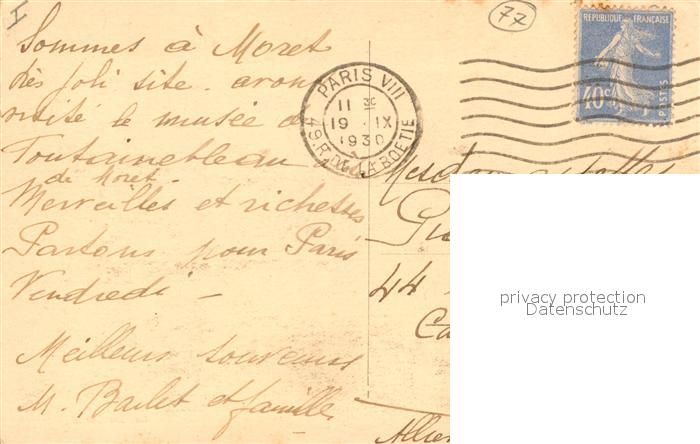 77
RÉPUBLIQUE FRANÇAISE
40c
POSTES
PARIS VIII
11 30
19 · IX
1930
49 R. DE LA BOETIE
Sommes à Moret
très joli site. avons
visité le musée de
Fontainebleau
de Moret
Merveilles et richesses
Partons pour Paris
Vendredi —
Meilleurs souvenirs
M. et famille
44
privacy protection
Datenschutz